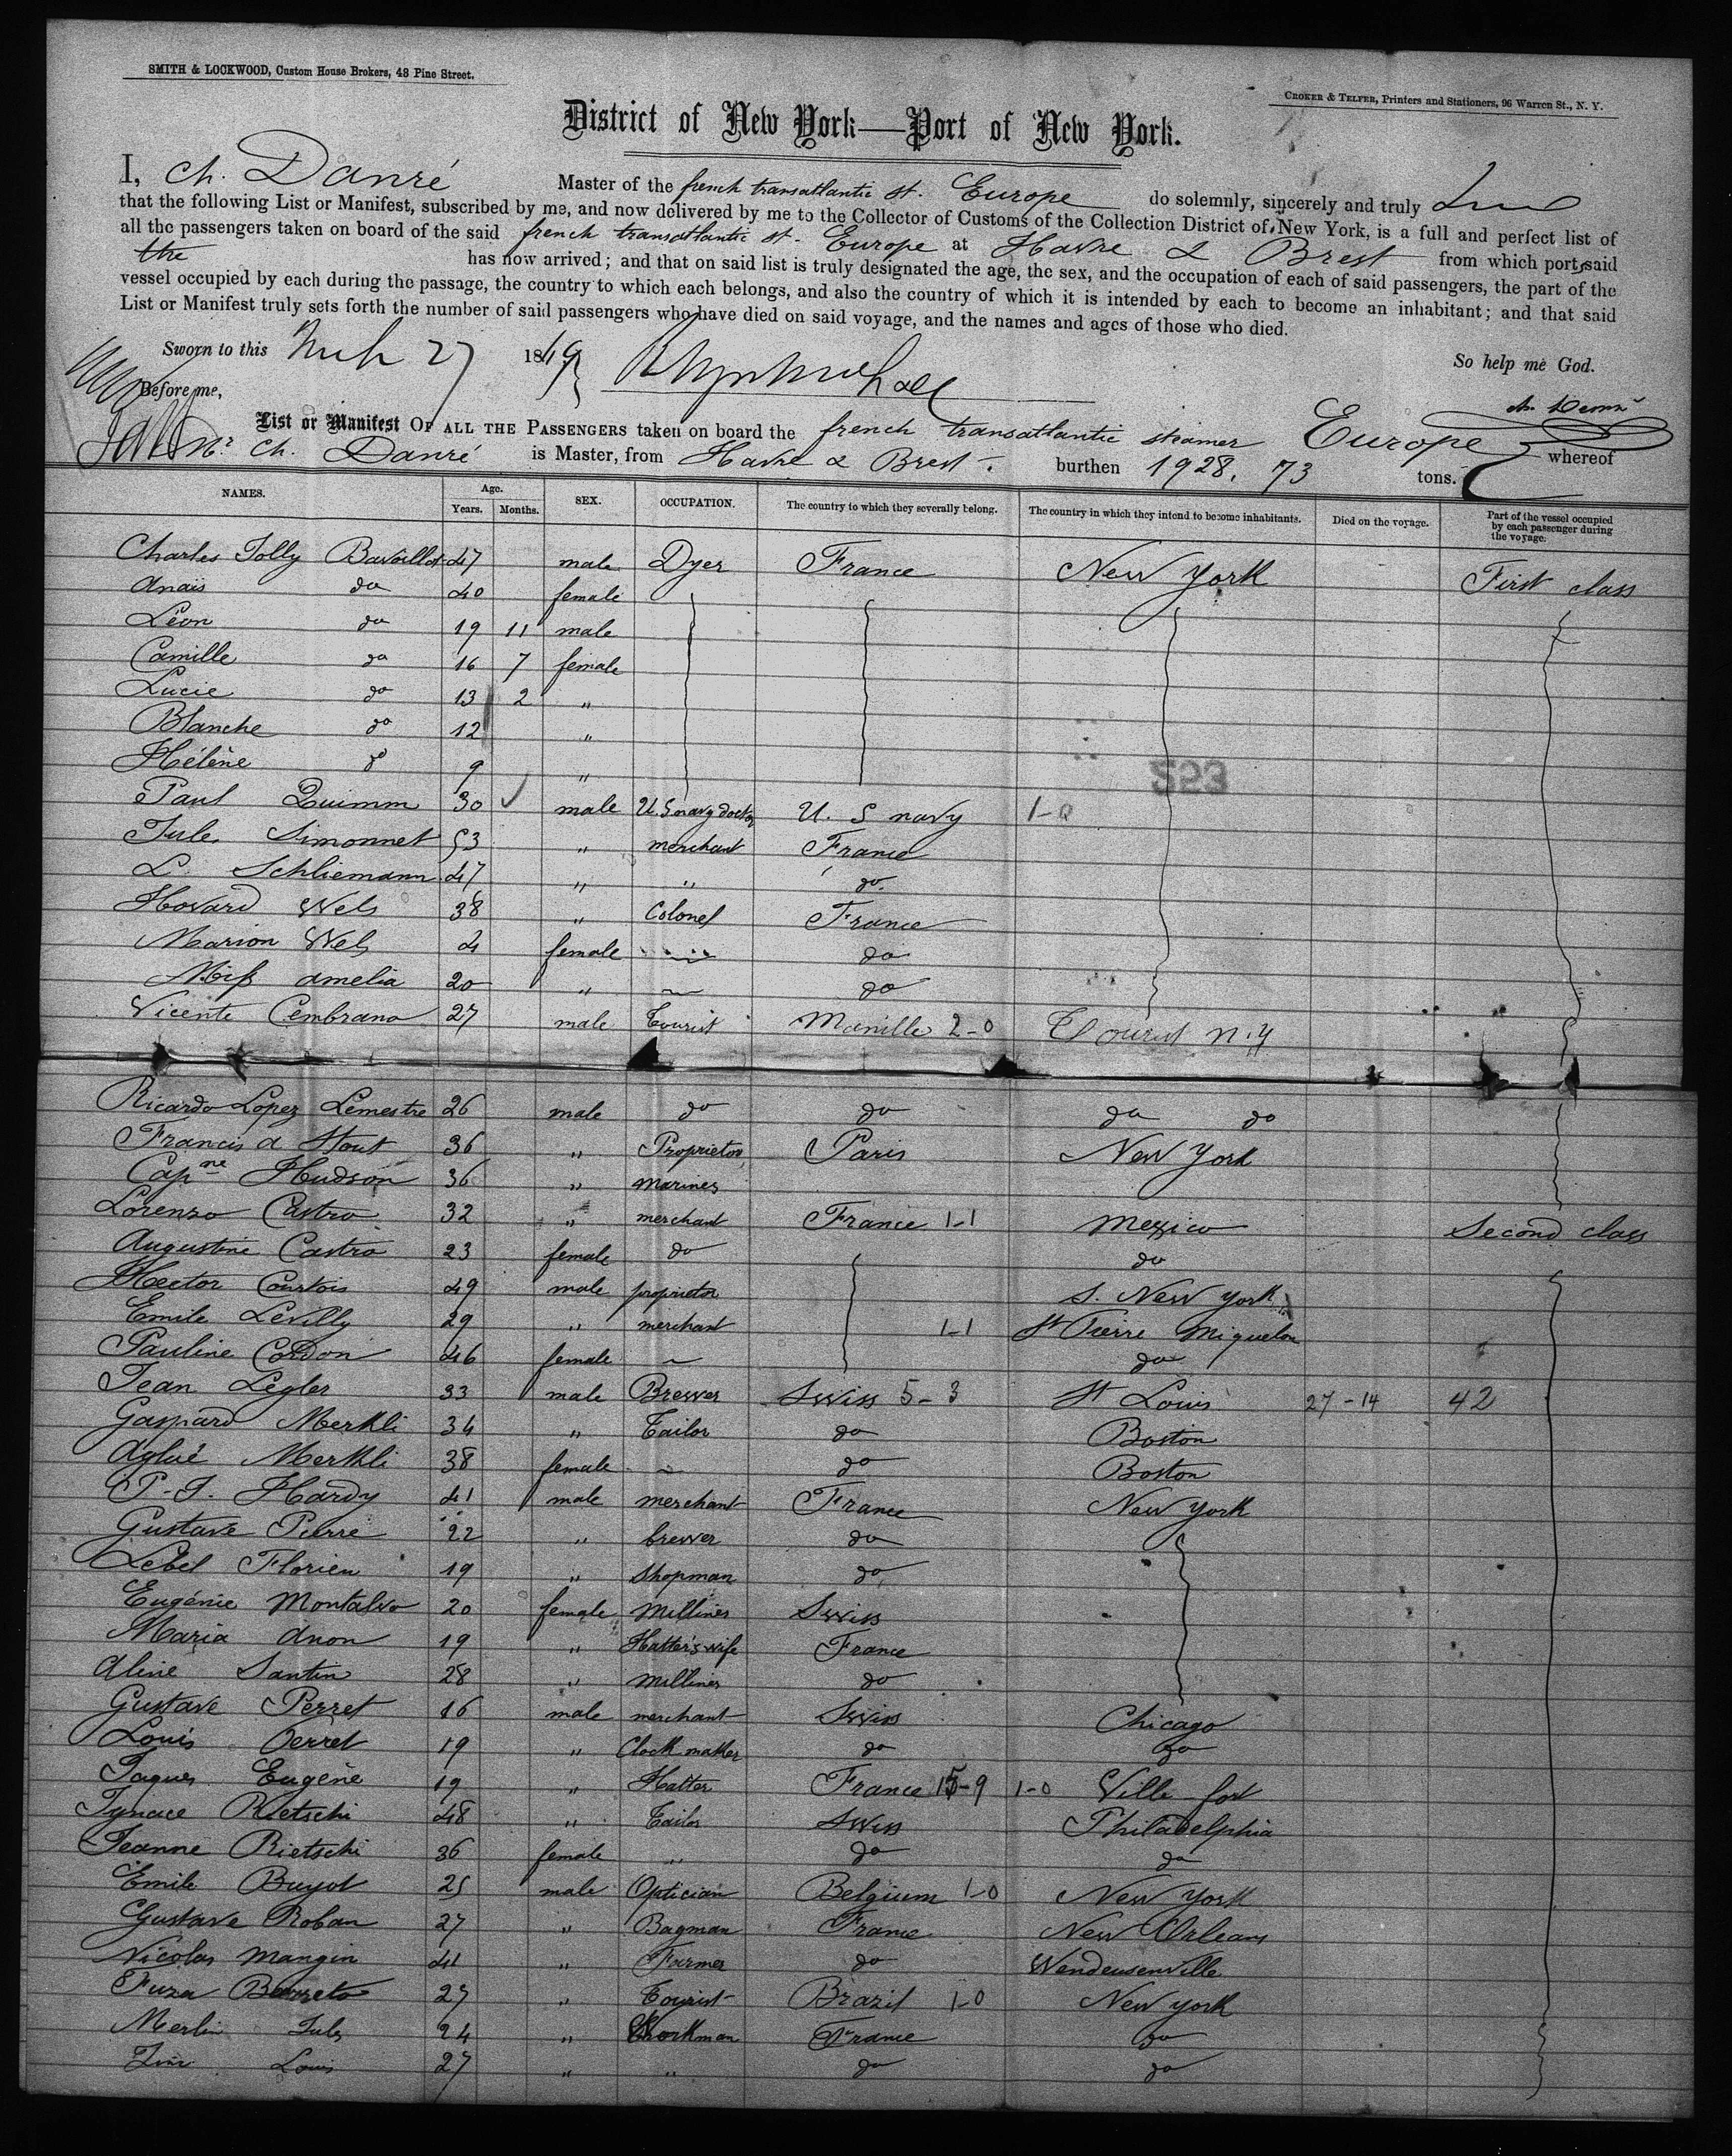 SMITH & LOCKWOOD, Custom House Brokers, 48 Pine Street.
CROKER & TELFER, Printers and Stationers, 96 Warren St., N. Y.
District of New York—Port of New York.
I, Ch. Danré Master of the french transatlantic st. Europe do solemnly, sincerely and truly
that the following List or Manifest, subscribed by me, and now delivered by me to the Collector of Customs of the Collection District of New York, is a full and perfect list of
all the passengers taken on board of the said french transatlantic st. Europe at Havre & Brest from which port said
the has now arrived; and that on said list is truly designated the age, the sex, and the occupation of each of said passengers, the part of the
vessel occupied by each during the passage, the country to which each belongs, and also the country of which it is intended by each to become an inhabitant; and that said
List or Manifest truly sets forth the number of said passengers who have died on said voyage, and the names and ages of those who died.
Sworn to this 27 1869 So help me God.
Before me,
List or Manifest OF ALL THE PASSENGERS taken on board the french transatlantic steamer Europe whereof
Mr. Ch. Danré is Master, from Havre & Brest. burthen 1928. 73 tons.
NAMES. Age. Years. Months. SEX. OCCUPATION. The country to which they severally belong. The country in which they intend to become inhabitants. Died on the voyage. Part of the vessel occupied by each passenger during the voyage.
Charles Jolly Bavoillot 47 male Dyer France New York First class
Anaïs do 40 female
Léon do 19 11 male
Camille do 16 7 female
Lucie do 13 2 "
Blanche do 12 "
Hélène do 9 "
Paul Quimm 30 male U.S navy doctor U. S navy 1-0
Jules Simonnet 53 " merchant France
L. Schliemann 47 " " do.
Hovard Wels 38 " Colonel France
Marion Wels 4 female do
Miss amelia 20 " do
Vicente Cembrano 27 male Tourist Manille 2-0 Tourist N.Y
Ricardo Lopez Lemestre 26 male do do do do
Francis a Stout 36 " Proprietor Paris New York
Capne Hudson 36 " Marines
Lorenzo Castro 32 " merchant France 1-1 Mexico Second class
Augustine Castro 23 female do do
Hector Courtois 49 male proprietor S. New York
Emile Levilly 29 " merchant 1-1 St Pierre Miquelon
Pauline Cordon 46 female do
Jean Legler 33 male Brewer Swiss 5-3 St Louis 27-14 42
Gaspard Merkli 34 " Tailor do Boston
Aglaé Merkli 38 female do Boston
P. J. Hardy 41 male merchant France New York
Gustave Pierre 22 " brewer do
Lebel Florien 19 " Shopman do
Eugénie Montalvo 20 female Milliner Swiss
Maria Anon 19 " Hatter's wife France
Aline Santin 28 " Milliner do
Gustave Perret 16 male merchant Swiss Chicago
Louis Perret 19 " Clock maker do do
Jaques Eugène 19 " Hatter France 15-9 1-0 Ville fort
Ignace Rietschi 48 " Tailor Swiss Philadelphia
Jeanne Rietschi 36 female " do do
Emile Buyot 25 male Optician Belgium 1-0 New York
Gustave Roban 27 " Bagman France New Orleans
Nicolas Mangin 41 " Farmer do Wendeusenville
Fuza Barreto 27 " Tourist Brazil 1-0 New York
Merlin Jules 24 " Workman France do
Louis 27 " " do do